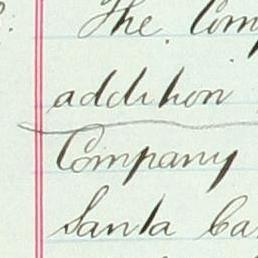 The Com
addition
Company
Santa Ca